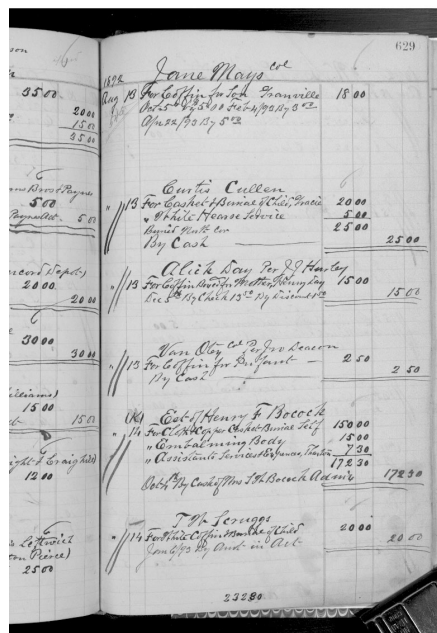 629
1892
Jane Mays col
Aug 13 For Coffin for Son Granville 18 00
Oct 5th By 5 00 Feb 4/93 By 3 00
Apr 22/93 By 5 00
Curtis Cullen
" 13 For Casket & Burial of Child, Gracie 20 00
" White Hearse Service 5 00
25 00
By Cash 25 00
Alick Day Per J J Hurley
" 13 For Coffin 15 00
Dec 5th By Check 13 50 By Discount 1 50 15 00
Van Otey Col Per Jno Deacon
" 13 For Coffin for Infant 2 50
By Cash 2 50
Est of Henry F Bocock
" 14 For Cloth & Copper Casket Burial Self 150 00
" Embalming Body 15 00
" Assistants Services & Expenses, 7 30
172 30
Oct 4th By Cash of Mrs Bocock Admix 172 30
T W Scruggs
" 14 For White Coffin Burial of Child 20 00
Jan 6/93 By Amt in Act 20 00
232 80
35 00
20 00
15 00
35 00
5 00
5 00
20 00
20 00
30 00
30 00
15 00
15 00
12 00
Pierce)
25 00